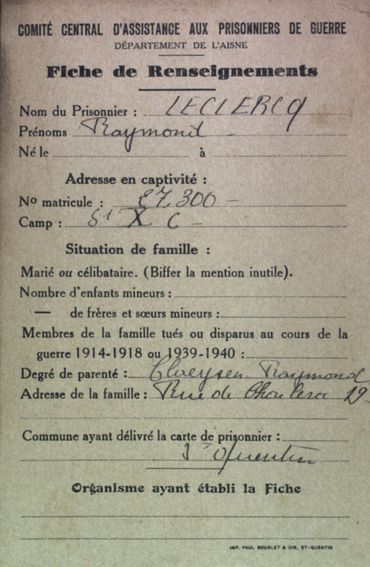 COMITÉ CENTRAL D'ASSISTANCE AUX PRISONNIERS DE GUERRE
DÉPARTEMENT DE L'AISNE
Fiche de Renseignements
Nom du Prisonnier : LECLERCQ
Prénoms Raymond
Né le à
Adresse en captivité :
No matricule : 27.300
Camp : St X C
Situation de famille :
Marié ou célibataire. (Biffer la mention inutile).
Nombre d'enfants mineurs :
— de frères et sœurs mineurs :
Membres de la famille tués ou disparus au cours de la
guerre 1914-1918 ou 1939-1940 :
Degré de parenté : Raymond
Adresse de la famille : Rue de 29
Commune ayant délivré la carte de prisonnier :
St Quentin
Organisme ayant établi la Fiche
IMP. PAUL BOURLET & CIE, ST-QUENTIN